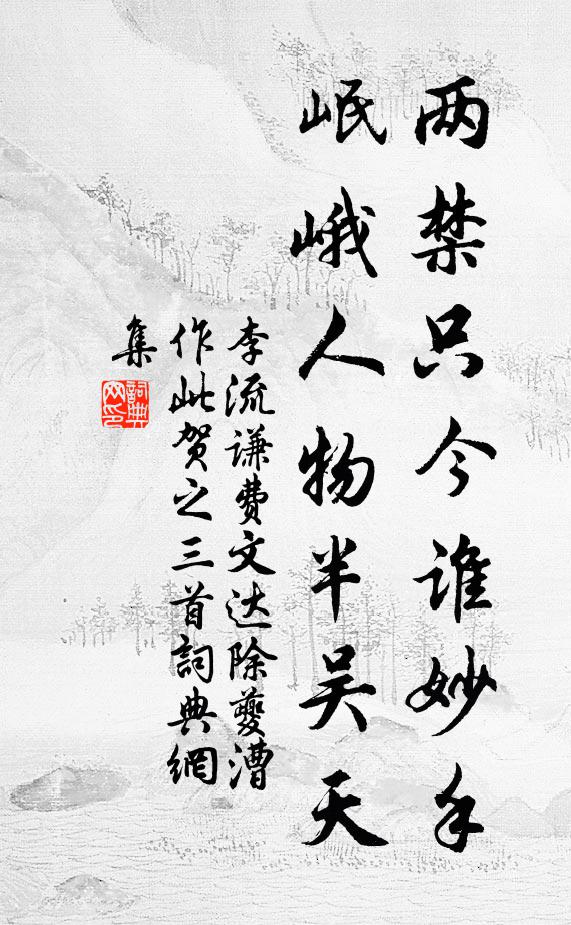 两禁只今谁妙手
岷峨人物半吴天
李流谦费文达除夔漕
作此贺之三首詞典網
集
詞典網印